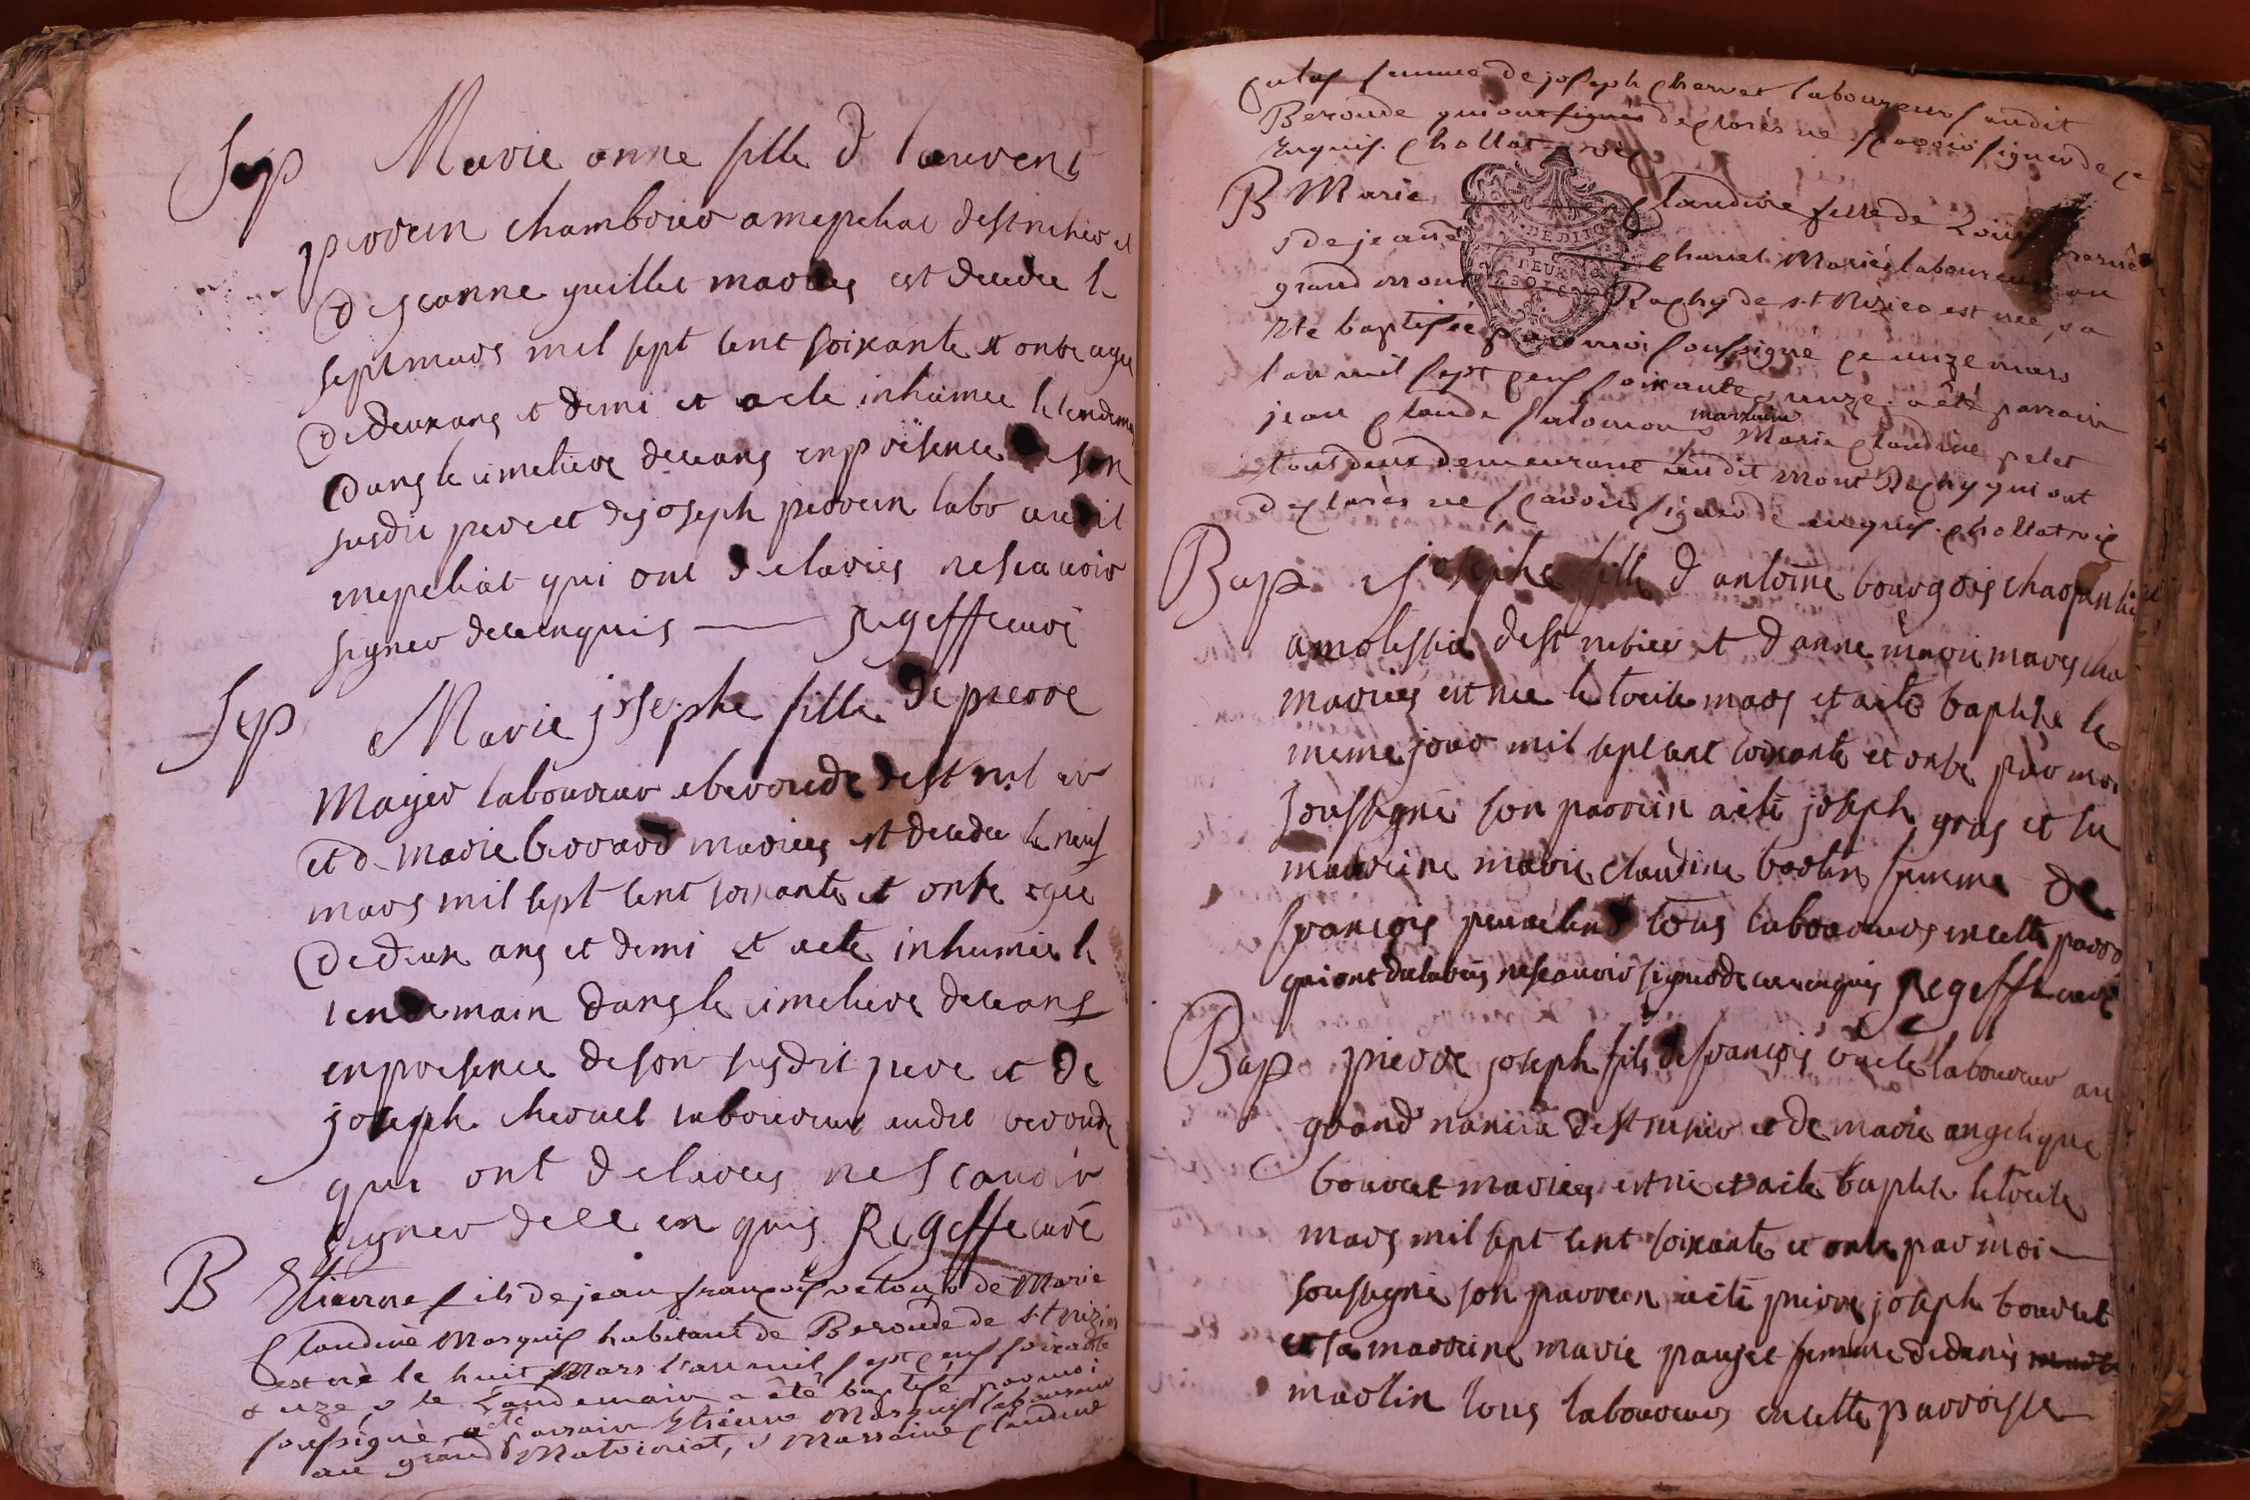 Sep Marie anne fille d laurent
perrein chambrier a mepeliat de st nisier et
de jeanne guillet maries est decedee le
sept mars mil sept cent soixante et onze agee
de deux ans et demi et a ete inhumee le lendemain
dans le cimetiere deceans en presence de son
susdit pere et de joseph perrein labr audit
mepeliat qui ont declares ne scavoir
signer de ce enquis Regeffe curé
Sep Marie josephe fille de pierre
Mayer laboureur a beroude de st nisier
et de marie berrard maries est decedee le neuf
mars mil sept cent soixante et onze agee
de deux ans et demi et a ete inhumée le
lendemain dans le cimetiere deceans
en presence de son susdit pere et de
joseph chervet laboureur audit beroude
qui ont declares ne scavoir
signer de ce enquis Regeffe curé
B Etienne fils de jean françois & de Marie
Claudine Marguis habitant de Beroude de st nizier
est né le huit Mars l'an mil sept cens soixante
& unze, & le Landemain a êté baptisé par moi
soussigné, a êté parrain Etienne Marguis laboureur
au grand Mataciriat, & Marraine Claudine
femme de joseph Chervet laboureur audit
Beroude qui ont declarés ne sçavoir signer de ce
enquis. Chollat vic
B Marie Claudine fille de Loüis
& de jeanne Charvet Mariés laboureurs au
grand mont Rachy de st Nizier est née, & a
ete baptisée par moi soussigné ce unze mars
l'an mil sept cens soixante & unze. a êté parrain
jean Claude Salomon & marraine Marie Claudine pelet
tous deux demeurans audit Mont Rachy qui ont
declarés ne sçavoir signer de ce enquis. Chollat vic
Bap josephe fille d antoine bourgois charpentier
a molissiat de st nisier et d anne marie
maries est nee le treize mars et a ete baptisee le
meme jour mil sept cent soixante et onze par moi
soussigné son parrein a été joseph gras et sa
marreine marie claudine bertin femme de
françois tous laboureurs en cette parro
qui ont declarés ne scavoir signer de ce enquis Regeffe curé
Bap pierre joseph fils de françois laboureur au
grand nancia de st nisier et de marie angelique
bouvret maries est né et a ete baptisé le treize
mars mil sept cent soixante et onze par moi
soussigné son parrein a été pierre joseph bouvret
et sa marreine marie pauget femme de denis
martin tous laboureurs en cette parroisse